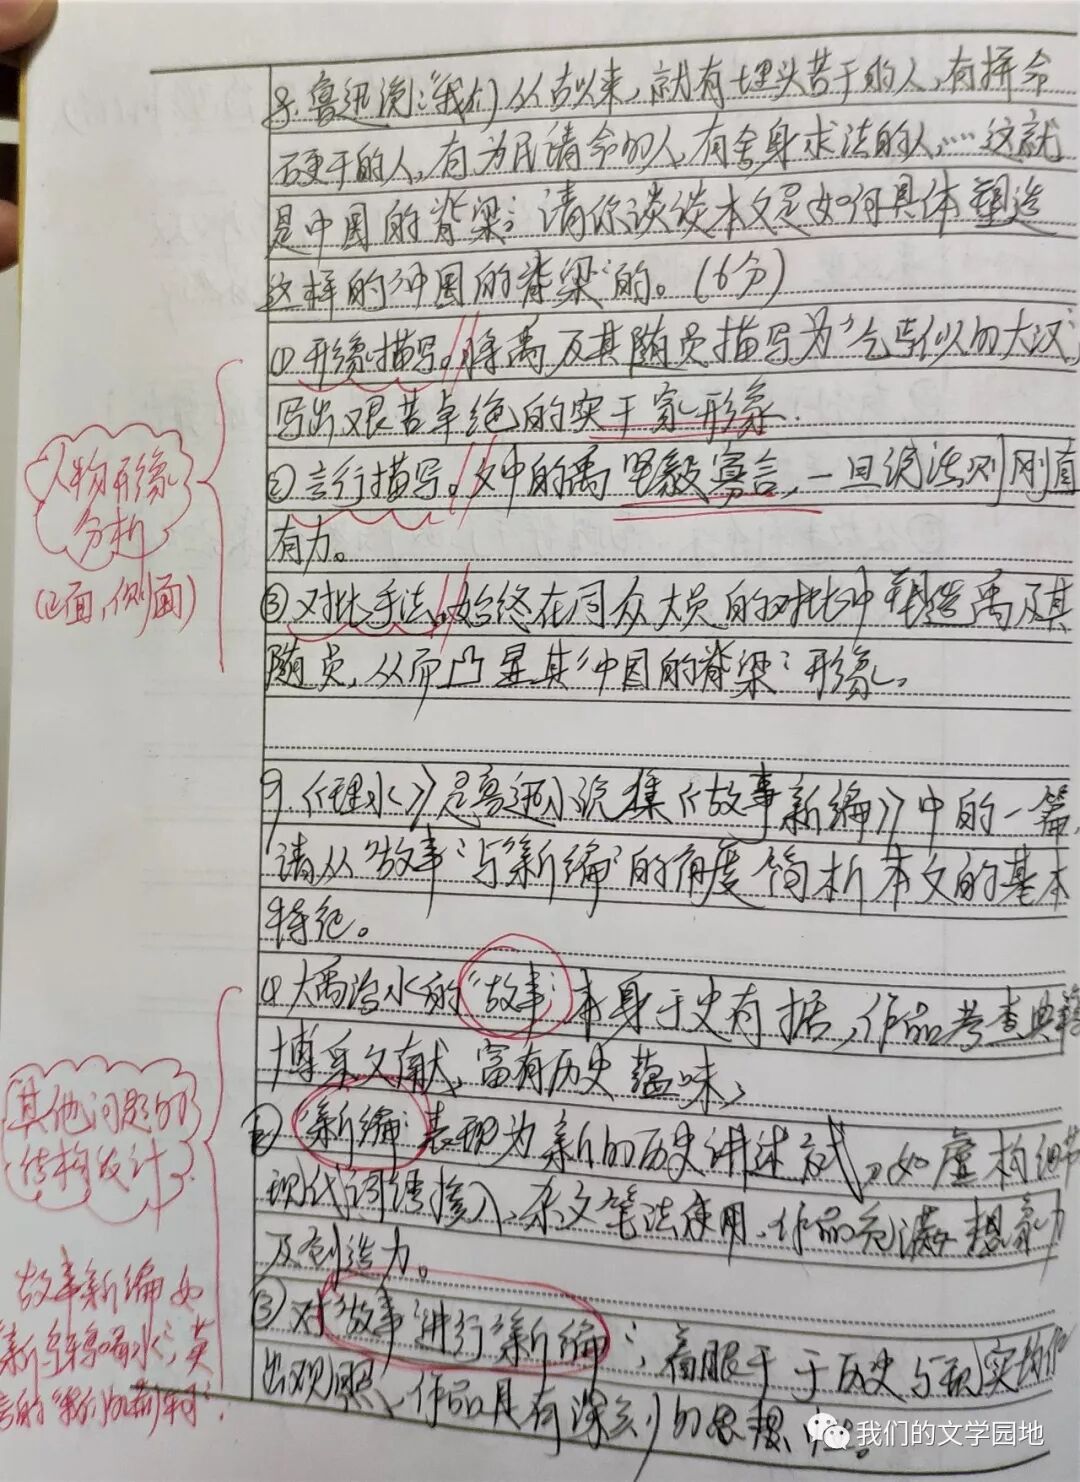 8.鲁迅说:“我们从古以来,就有埋头苦干的人,有拼命
硬干的人,有为民请命的人,有舍身求法的人,……这就
是中国的脊梁”请你谈谈本文是如何具体塑造
这样的“中国的脊梁”的。(6分)
①形象描写。将禹及其随员描写为“乞丐似的大汉”
写出艰苦卓绝的实干家形象.
②言行描写。文中的禹坚毅寡言,一旦说法则刚直
有力。
③对比手法。始终在同众大员的对比中塑造禹及其
随员,从而凸显其“中国的脊梁”形象。
人物形象
分析
(正面,侧面)
9.《理水》是鲁迅小说集《故事新编》中的一篇,
请从“故事”与“新编”的角度简析本文的基本
特征。
①大禹治水的“故事”本身于史有据,作品考查典籍
博采文献,富有历史蕴味,
②“新编”表现为新的历史讲述方式,如虚构细节
现代词语掺入,杂文笔法使用,作品充满想象力
及创造力。
③对“故事”进行“新编”,着眼于于历史与现实
出观照,作品具有深刻的思想性。
其他问题的
结构设计
故事新编如
我们的文学园地